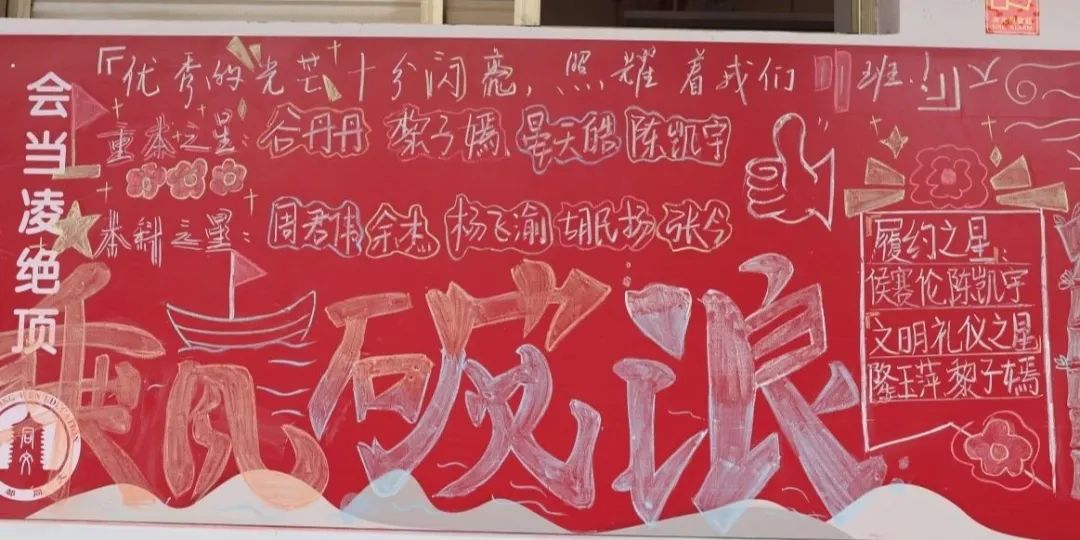 会当凌绝顶
『优秀的光芒十分闪亮,照耀着我们班!』
重本之星: 谷丹丹 黎子嫣 晏天皓 陈凯宇
本科之星: 周君伟 余杰 杨飞渝 胡民扬
乘风破浪
履约之星:
侯赛伦 陈凯宇
文明礼仪之星
隆玉萍 黎子嫣
同文